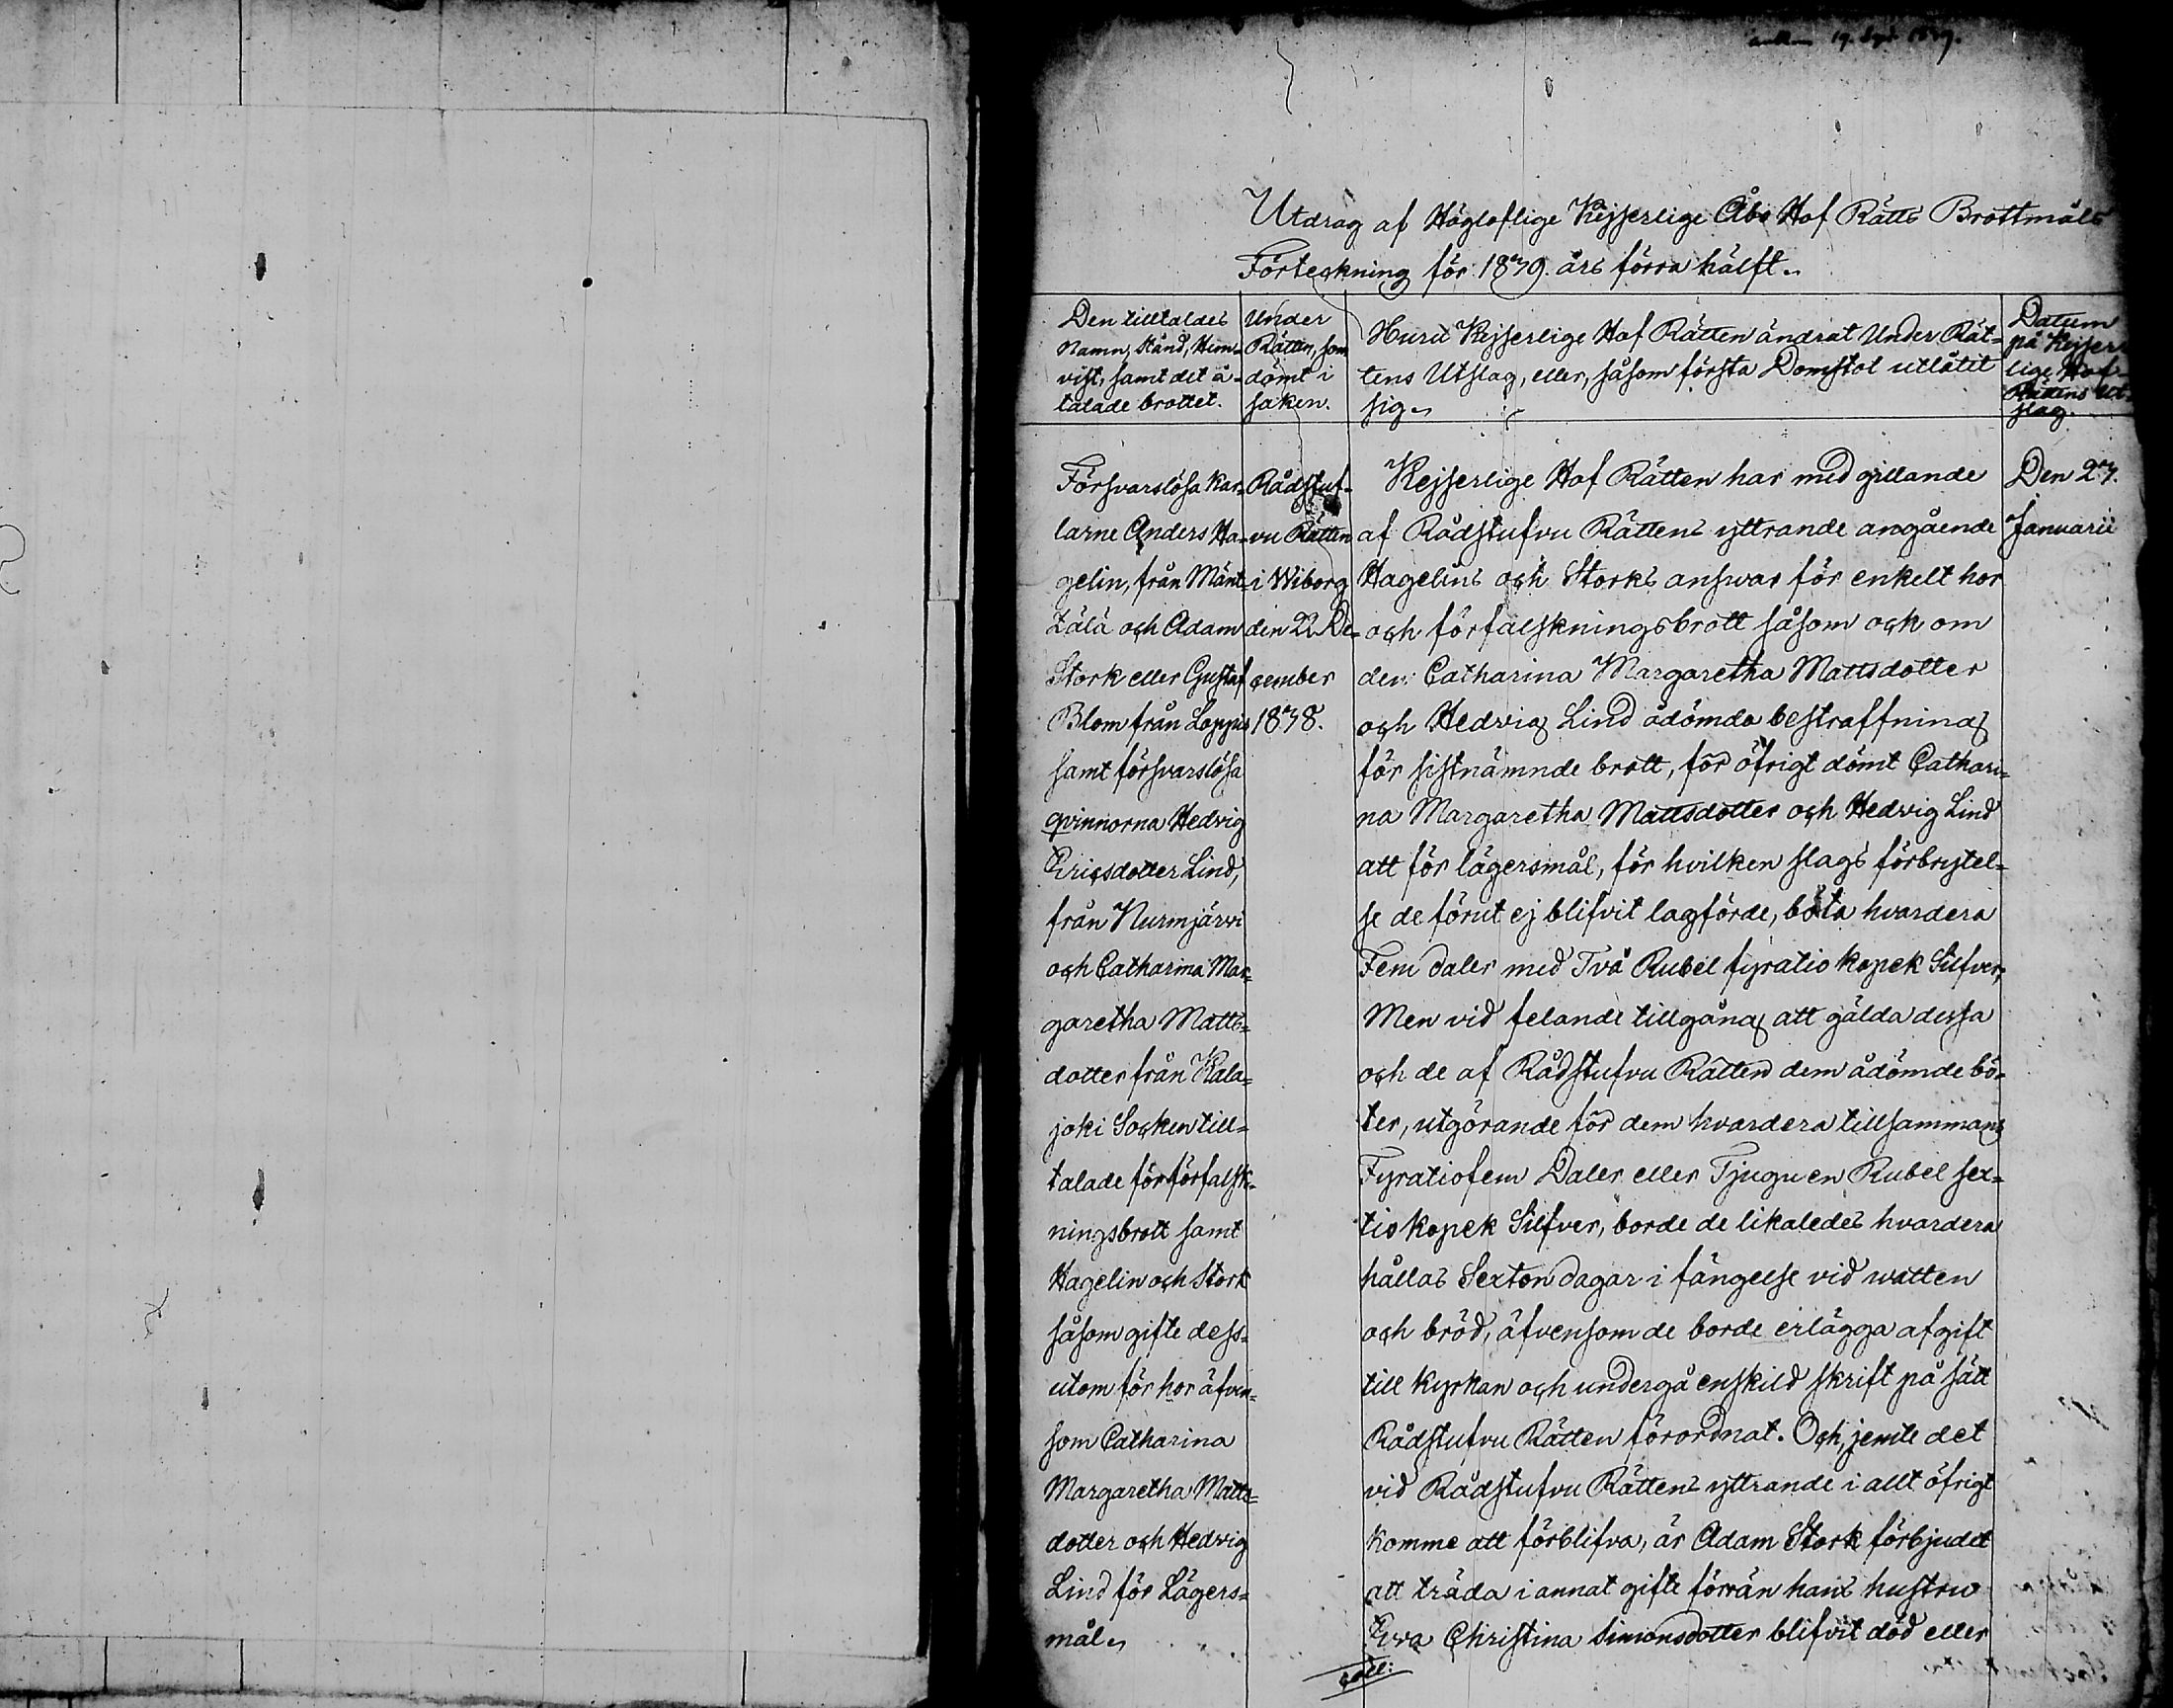 19. Sept. 1839.
Utdrag af Högloflige Kejserlige Åbo Hof Rätts Brottmåls
Förteckning för 1839. års förra hälft.
Den tilltaldes
Namn, Stånd, Hem-
vist, samt det å-
talade brottet.
Under
Rätten, som
dömt i
saken.
Huru Kejserlige Hof Rätten ändrat Under Rät-
tens Utslag, eller, såsom första Domstol utlåtit
sig.
Datum
på Kejser-
lige Hof
Rättens Ut-
slag.
Försvarslösa Kar-
larne Anders Ha-
gelin, från Mänt-
zälä och Adam
Stork eller Gustaf
Blom från Loppis
samt försvarslösa
qvinnorna Hedvig
Ericsdotter Lind,
från Nurmjärvi
och Catharina Mar-
garetha Matts-
dotter från Kala-
joki Socken till-
talade för förfalsk-
ningsbrott samt
Hagelin och Stork
såsom gifte dess-
utom för hor äfven-
som Catharina
Margaretha Matts-
dotter och Hedvig
Lind för Lägers-
mål.
Rådstuf-
vu Rätten
i Wiborg
den 22 De-
cember
1838.
Kejserlige Hof Rätten har med gillande
af Rådstufvu Rättens yttrande angående
Hagelins och Storks answar för enkelt hor
och förfalskningsbrott såsom ock om
den Catharina Margaretha Mattsdotter
och Hedvig Lind ådömda bestraffning
för sistnämnde brott, för öfrigt dömt Cathari-
na Margaretha Mattsdotter och Hedvig Lind
att för lägersmål, för hvilken slags förbrytel-
se de förut ej blifvit lagförde, böta hvardera
Fem daler med Två Rubel fyratio kopek Silfver,
Men vid felande tillgång att gälda dessa
och de af Rådstufvu Rätten dem ådömde bö-
ter, utgörande för dem hvardera tillsammans
Fyratiofem Daler eller Tjuguen Rubel sex-
tio kopek Silfver, borde de likaledes hvardera
hållas Sexton dagar i fängelse vid watten
och bröd, äfvensom de borde erlägga afgift
till Kyrkan och undergå enskild skrift på sätt
Rådstufvu Rätten förordnat. Och, jemte det
vid Rådstufvu Rättens yttrande i allt öfrigt
komme att förblifva, är Adam Stork förbjudet
att träda i annat gifte förrän hans hustru
Eva Christina Simonsdotter blifvit död eller
Den 27.
Januarii
coll: